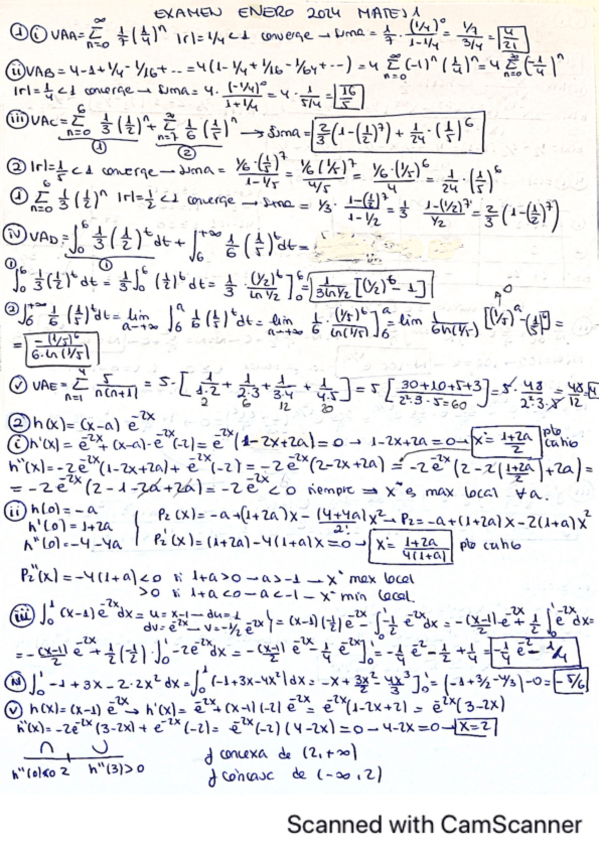 EXAMEN ENERO 2024 MATES 1
① ⓘ VAA = ∑_{n=0}^{∞} 1/7 (1/4)^n |r| = 1/4 < 1 converge → suma = 1/7 · (1/4)^0/(1-1/4) = (1/7)/(3/4) = 4/21
ⓘⓘ VAB = 4-1+1/4-1/16+... = 4(1-1/4+1/16-1/64+...) = 4 ∑_{n=0}^{∞} (-1)^n (1/4)^n = 4 ∑_{n=0}^{∞} (-1/4)^n
|r| = 1/4 < 1 converge → suma = 4 · (-1/4)^0/(1+1/4) = 4 · 1/(5/4) = 16/5
ⓘⓘⓘ VAC = ∑_{n=0}^{6} 1/3 (1/2)^n + ∑_{n=7}^{∞} 1/6 (1/5)^n → suma = 2/3 (1-(1/2)^7) + 1/24 · (1/5)^6
① ②
② |r| = 1/5 < 1 converge → suma = 1/6 · (1/5)^7/(1-1/5) = 1/6 (1/5)^7/(4/5) = 1/6 · (1/5)^6/4 = 1/24 · (1/5)^6
① ∑_{n=0}^{6} 1/3 (1/2)^n |r| = 1/2 < 1 converge → suma = 1/3 · (1-(1/2)^7)/(1-1/2) = 1/3 · (1-(1/2)^7)/(1/2) = 2/3 (1-(1/2)^7)
iv) VAD = ∫_0^6 1/3 (1/2)^t dt + ∫_6^{+∞} 1/6 (1/5)^t dt =
① ①
∫_0^6 1/3 (1/2)^t dt = 1/3 ∫_0^6 (1/2)^t dt = 1/3 · (1/2)^t/ln 1/2 ]_0^6 = 1/(3 ln 1/2) [(1/2)^6 - 1]
② ∫_6^{+∞} 1/6 (1/5)^t dt = lim_{a→+∞} ∫_6^a 1/6 (1/5)^t dt = lim_{a→+∞} 1/6 · (1/5)^t/ln(1/5) ]_6^a = lim 1/(6 ln(1/5)) [(1/5)^a - (1/5)^6] =
= -(1/5)^6/(6·ln(1/5))
v) VAE = ∑_{n=1}^{4} 5/(n(n+1)) = 5 · [1/(1·2) + 1/(2·3) + 1/(3·4) + 1/(4·5)] = 5 [(30+10+5+3)/(2²·3·5=60)] = 5 · 48/(2²·3·5) = 48/12 = 4
② h(x) = (x-a) e^{-2x}
ⓘ h'(x) = e^{-2x} + (x-a)·e^{-2x}(-2) = e^{-2x}(1-2x+2a) = 0 → 1-2x+2a = 0 → x* = (1+2a)/2 pto crítico
h''(x) = -2e^{-2x}(1-2x+2a) + e^{-2x}(-2) = -2e^{-2x}(2-2x+2a) = -2e^{-2x}(2-2((1+2a)/2)+2a) =
= -2e^{-2x}(2-1-2a+2a) = -2e^{-2x} < 0 siempre ⇒ x* es max local ∀a.
ii) h(0) = -a
h'(0) = 1+2a
h''(0) = -4-4a
P2(x) = -a+(1+2a)x - (4+4a)/2! x² → P2 = -a+(1+2a)x-2(1+a)x²
P2'(x) = (1+2a)-4(1+a)x = 0 → x* = (1+2a)/(4(1+a)) pto crítico
P2''(x) = -4(1+a) < 0 si 1+a > 0 → a > -1 → x* max local
> 0 si 1+a < 0 → a < -1 → x* min local.
iii) ∫_0^1 (x-1)e^{-2x} dx = {u = x-1 → du = 1 dv = e^{-2x} → v = -1/2 e^{-2x}} = (x-1)(-1/2)e^{-2x} - ∫_0^1 -1/2 e^{-2x} dx = -(x-1)/2 · e^{-2x} + 1/2 ∫_0^1 e^{-2x} dx =
= -(x-1)/2 e^{-2x} + 1/2 (-1/2) · ∫_0^1 -2e^{-2x} dx = -(x-1)/2 e^{-2x} - 1/4 e^{-2x} ]_0^1 = -1/4 e^{-2} - 1/2 + 1/4 = -1/4 e^{-2} - 1/4
iv) ∫_0^1 -1+3x-2·2x² dx = ∫_0^1 (-1+3x-4x²) dx = -x + 3x²/2 - 4x³/3 ]_0^1 = (-1+3/2-4/3)-0 = -5/6
v) h(x) = (x-1) e^{-2x} → h'(x) = e^{-2x} + (x-1)(-2) e^{-2x} = e^{-2x}(1-2x+2) = e^{-2x}(3-2x)
h''(x) = -2e^{-2x}(3-2x) + e^{-2x}(-2) = e^{-2x}(-2)(4-2x) = 0 → 4-2x = 0 → x = 2
∩ ∪
h''(0)<0 2 h''(3)>0
f convexa de (2,+∞)
f concave de (-∞,2)
Scanned with CamScanner